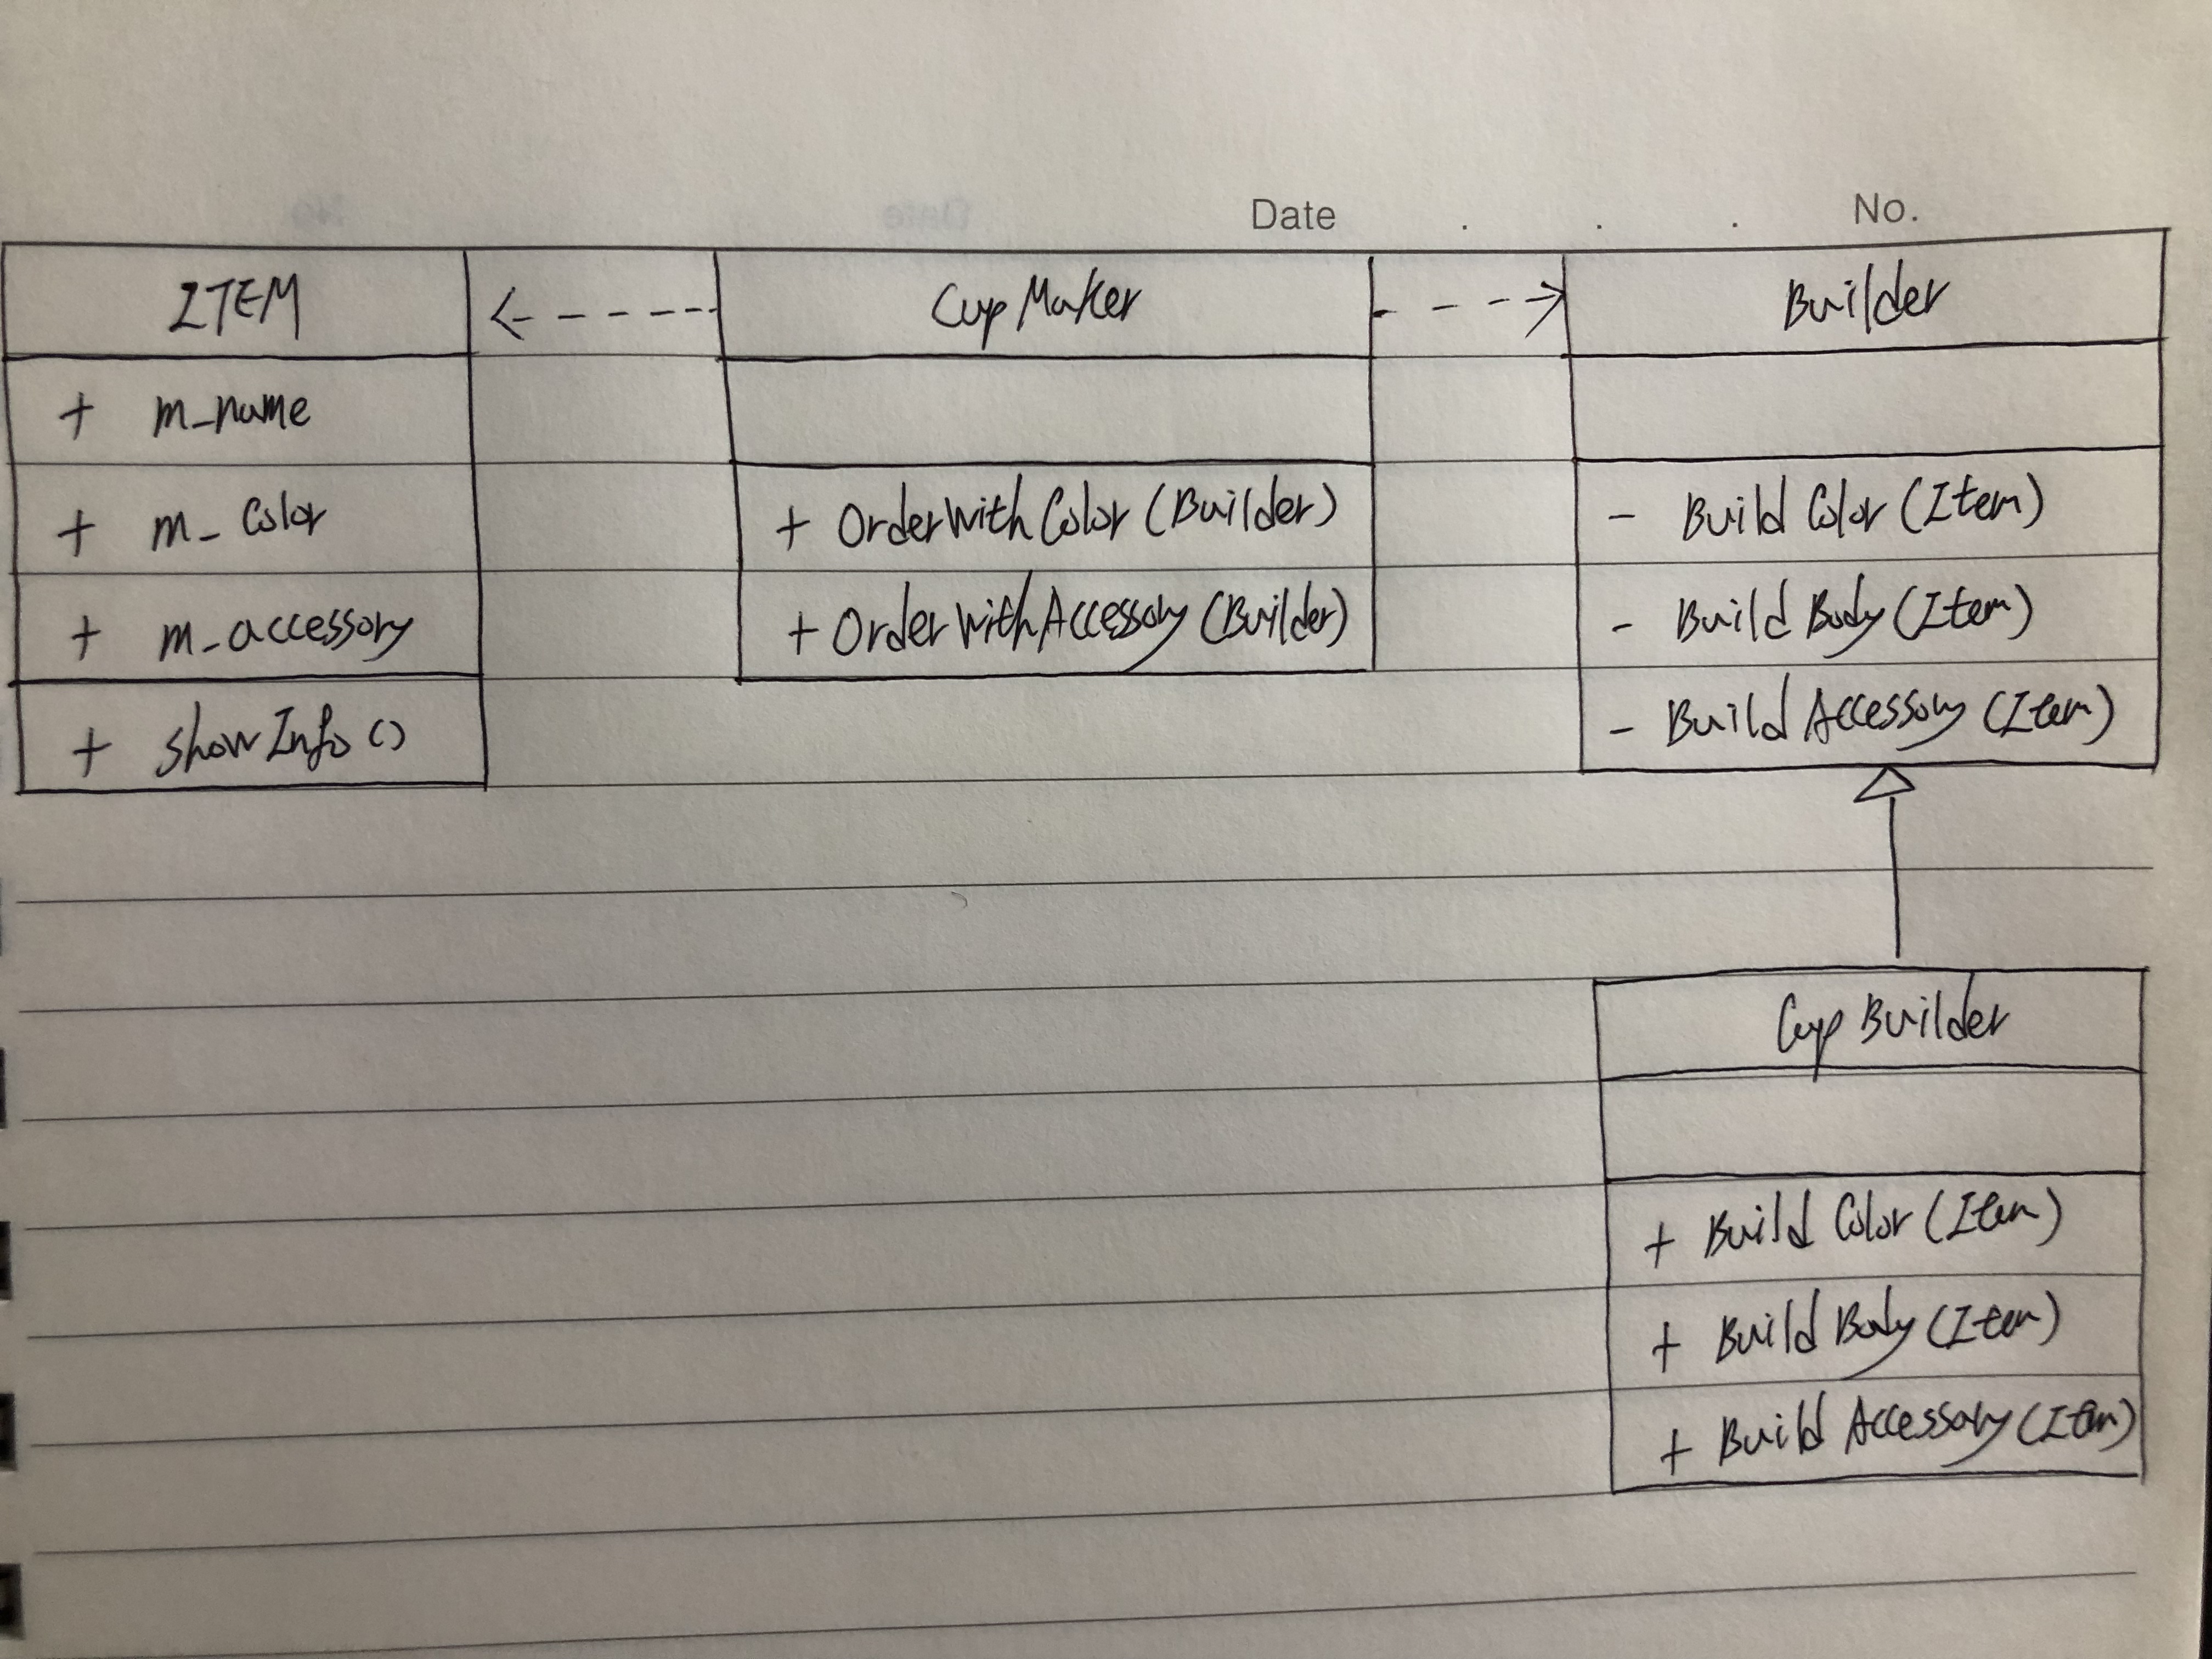 Date . . . No.
ITEM
+ m_name
+ m_color
+ m_accessory
+ showInfo ()
CupMaker
+ OrderWithColor (Builder)
+ OrderWithAccessory (Builder)
Builder
- Build Color (Item)
- Build Body (Item)
- Build Accessory (Item)
Cup Builder
+ Build Color (Item)
+ Build Body (Item)
+ Build Accessory (Item)